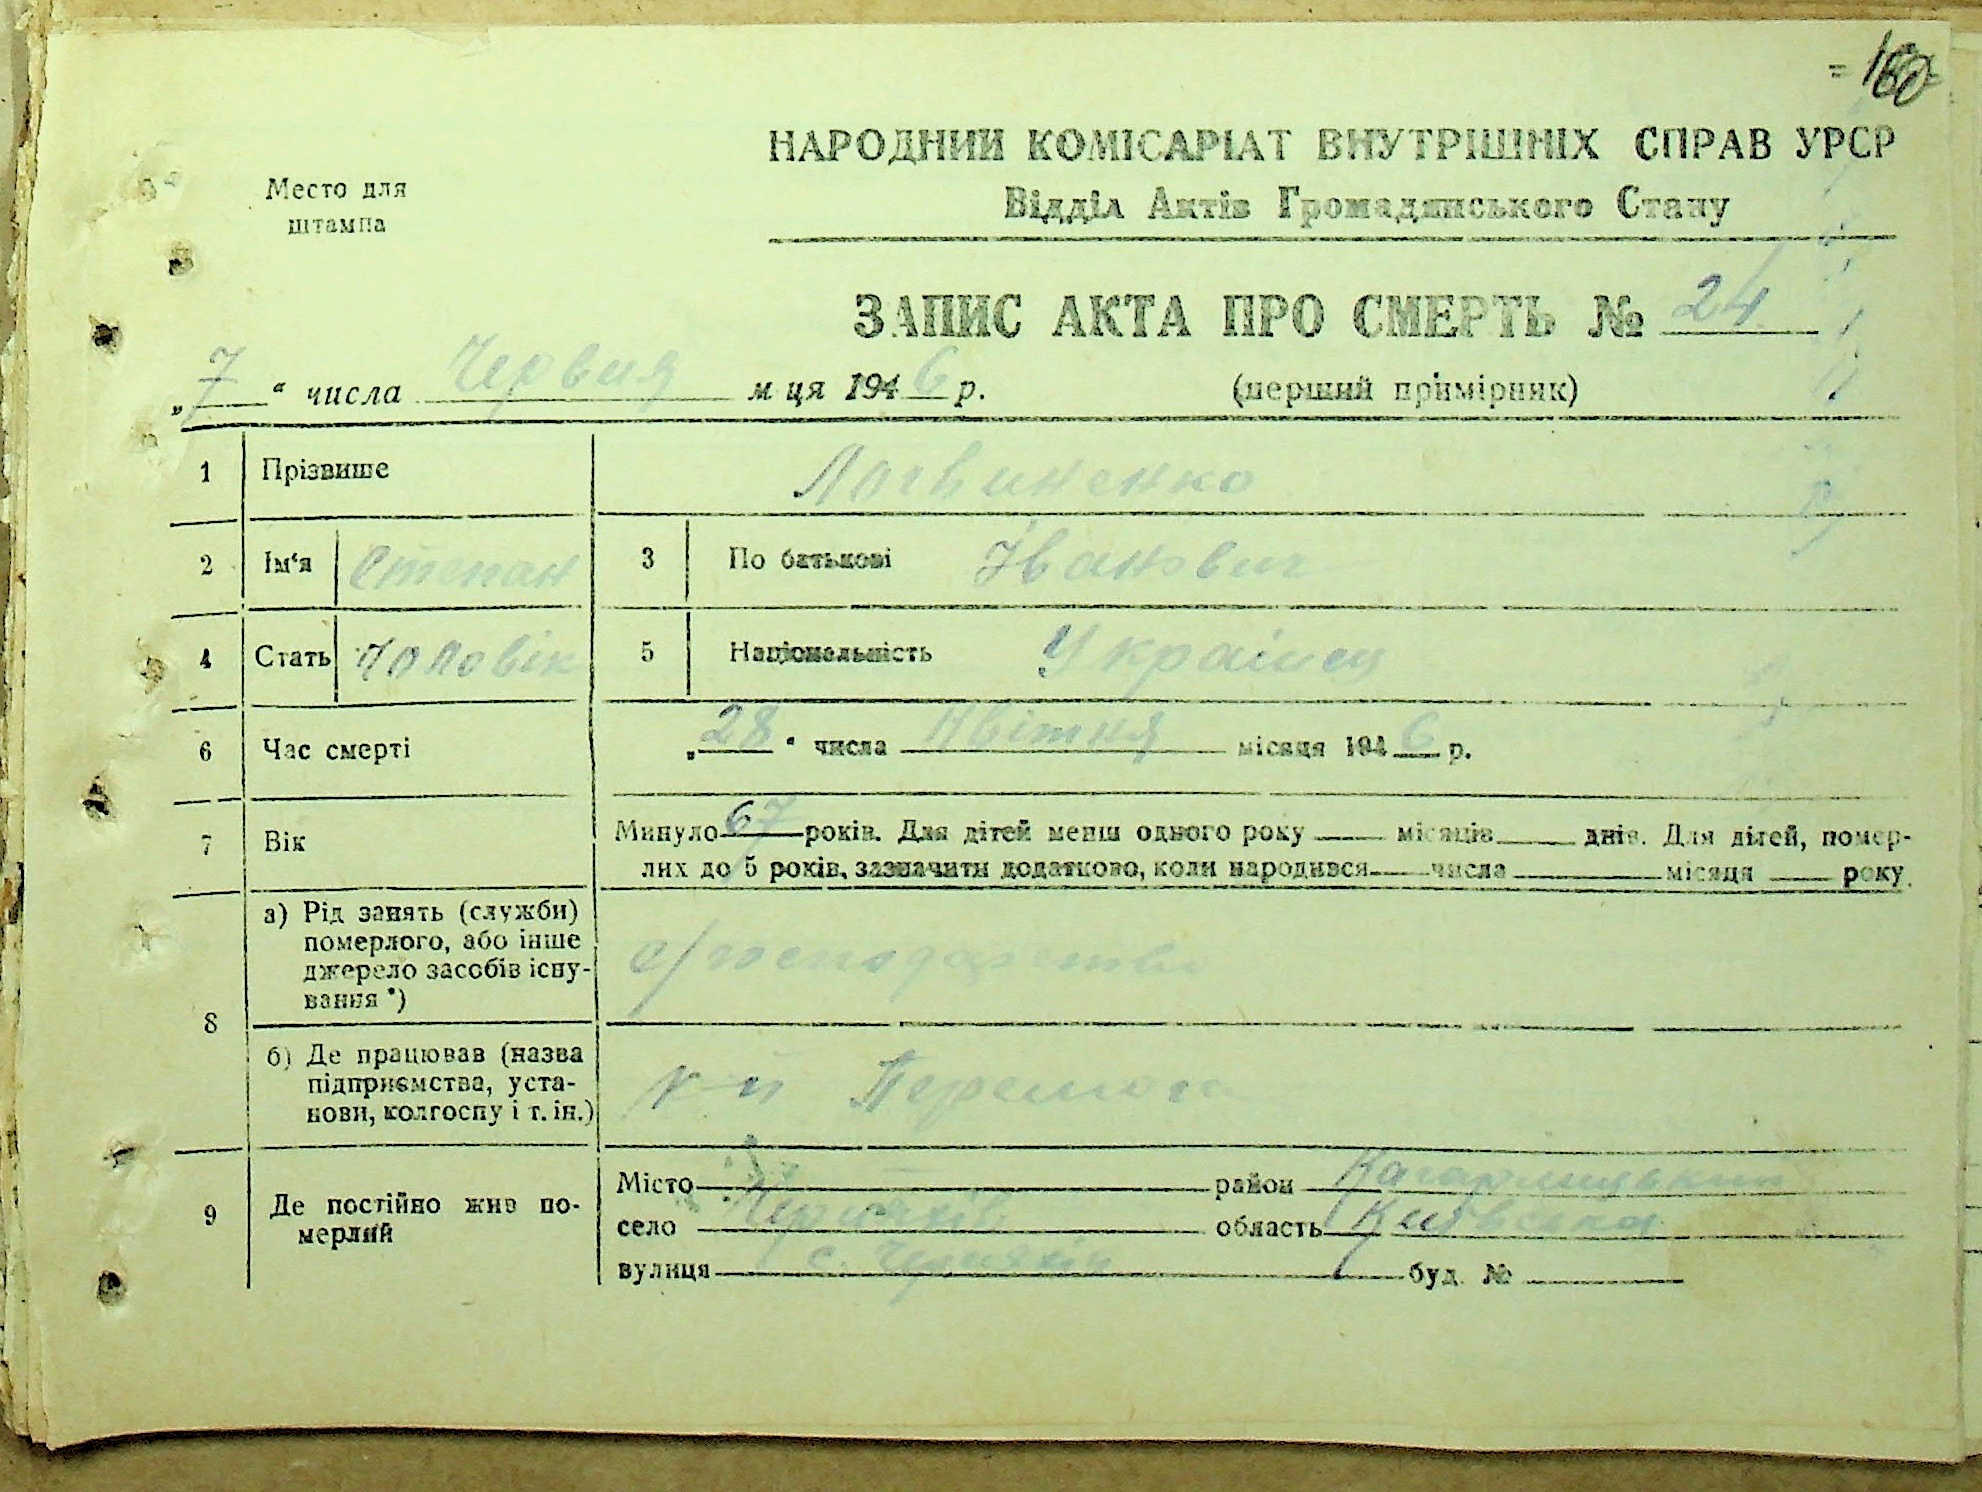 = 160 =
НАРОДНИЙ КОМІСАРІАТ ВНУТРІШНІХ СПРАВ УРСР
Место для
штампа
Відділ Актів Громадянського Стану
ЗАПИС АКТА ПРО СМЕРТЬ № 24
„7“ числа Червня м ця 1946 р. (перший примірник)
1 Прізвише Логвиненко
2 Ім‘я Степан 3 По батькові Іванович
4 Стать чоловік 5 Національність Українец
6 Час смерті „28“ числа Квітня місяця 1946 р.
7 Вік Минуло 67 років. Для дітей менш одного року місяців днів. Для дітей, помер-
лих до 5 років, зазначити додатково, коли народився числа місяця року.
8 а) Рід занять (служби)
померлого, або інше
джерело засобів існу-
вання *)
с/господарство
б) Де працював (назва
підприємства, уста-
нови, колгоспу і т. ін.)
к-п Перемога
9 Де постійно жив по-
мерлий
Місто район Кагарлицький
село область Київська
вулиця с. буд. №